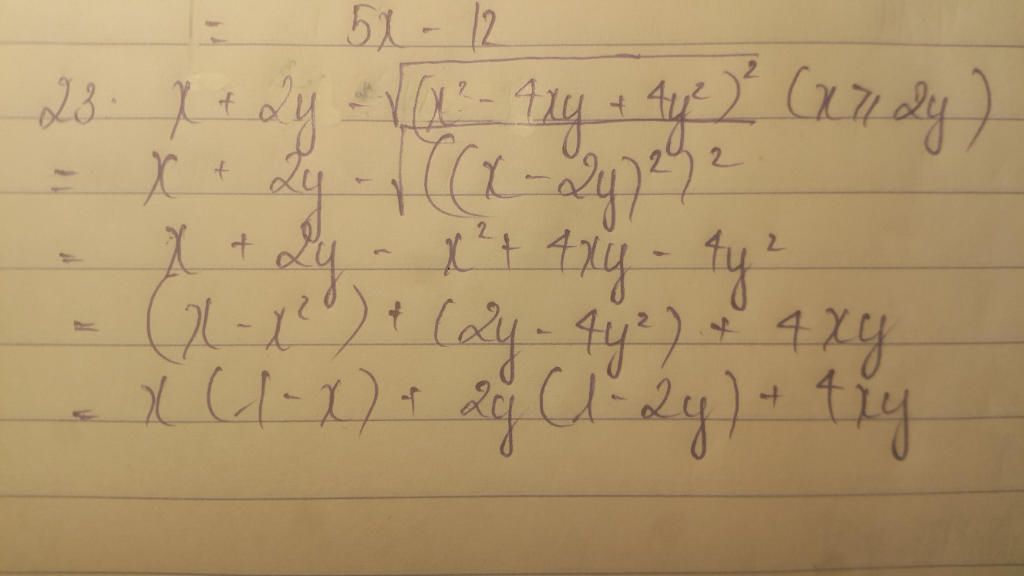 = 5x - 12
23. x + 2y - √(x² - 4xy + 4y²)² (x ⩾ 2y)
= x + 2y - √((x - 2y)²)²
= x + 2y - x² + 4xy - 4y²
= (x - x²) + (2y - 4y²) + 4xy
= x (1 - x) + 2y (1 - 2y) + 4xy